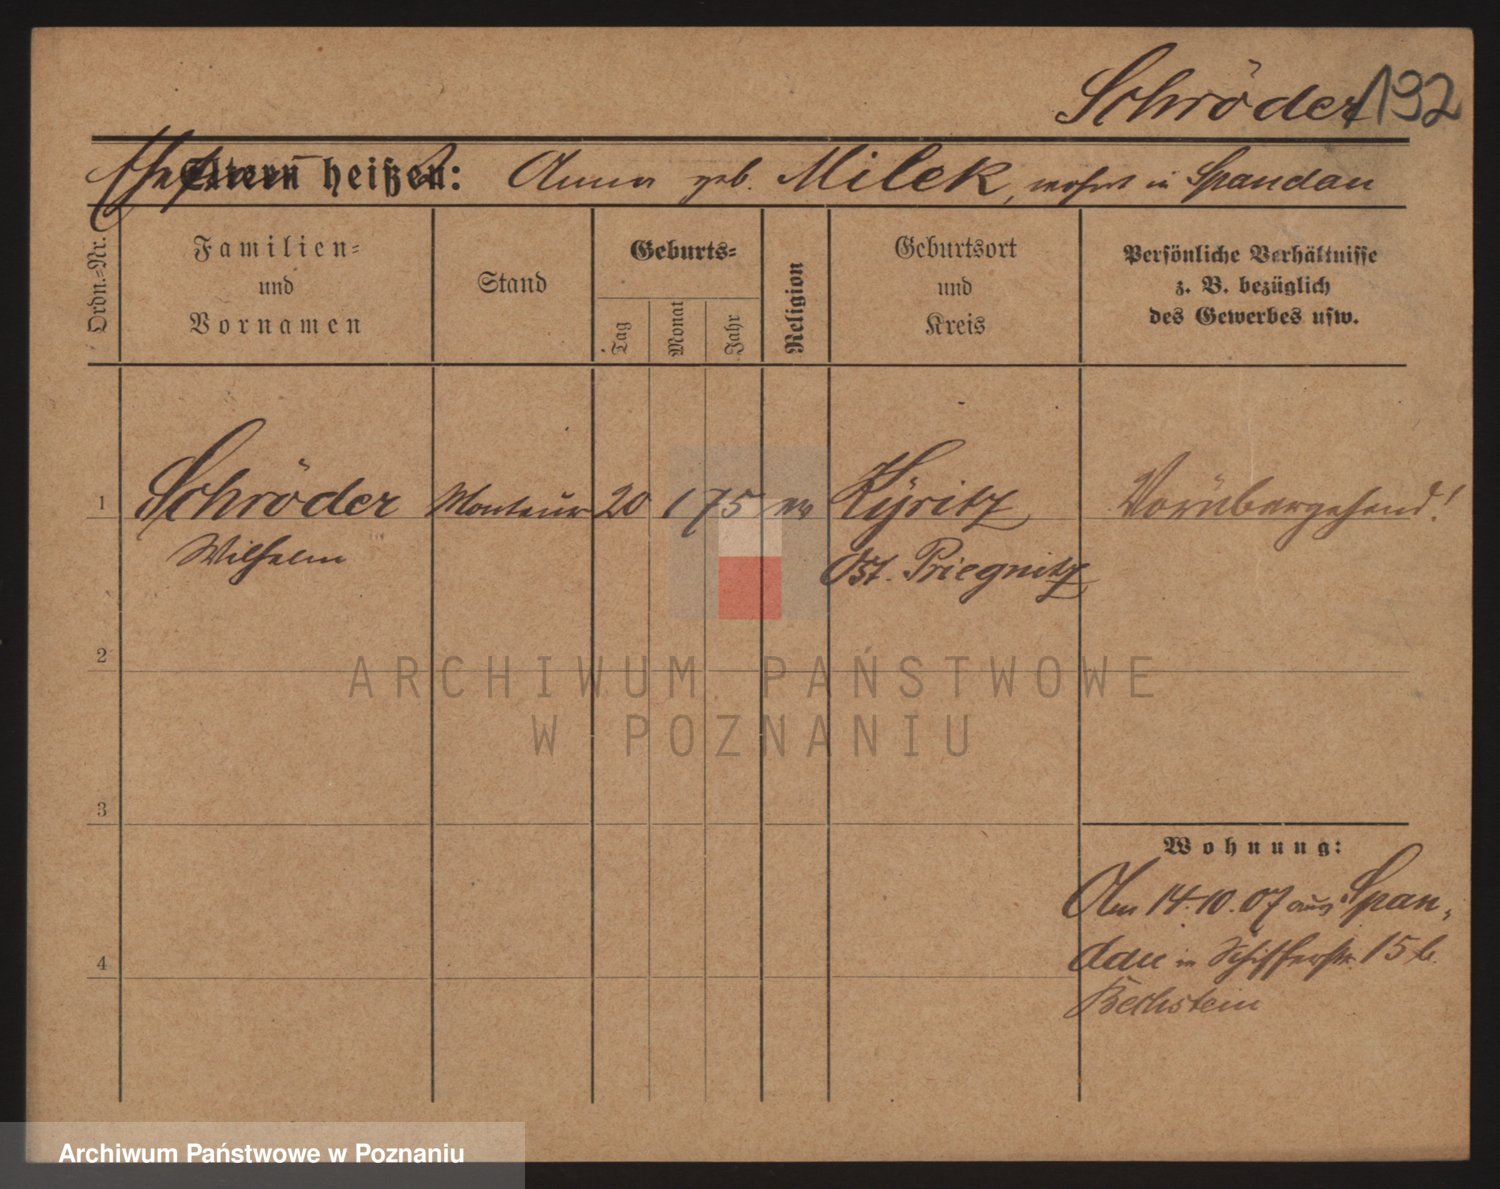 Schröder 192
Ehefrau
Eltern heißen: Anna geb. Milek, wohnt in Spandau
Ordn.-Nr.
Familien-
und
Vornamen
Stand
Geburts-
Tag
Monat
Jahr
Religion
Geburtsort
und
Kreis
Persönliche Verhältnisse
z. B. bezüglich
des Gewerbes usw.
1 Schröder Monteur 20 1 75 ev Kyritz Vorübergehend!
Wilhelm Ost. Priegnitz
2
3
4
Wohnung:
Am 14.10.07 aus Span-
dau in Schifferstr. 15 b.
Bechstein
ARCHIWUM PAŃSTWOWE
W POZNANIU
Archiwum Państwowe w Poznaniu